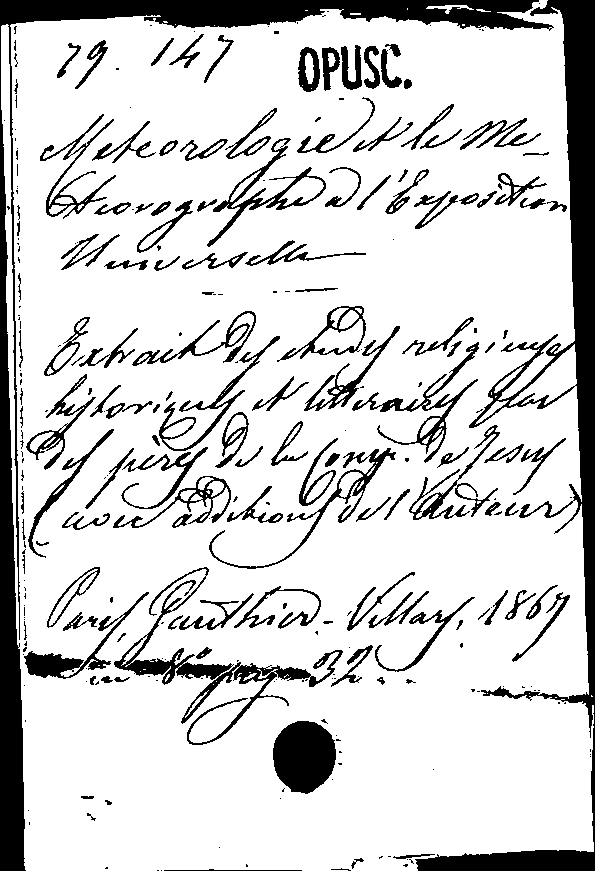 79. 147 OPUSC.
Meteorologie et le Me-
teorographe a l'Exposition
Universelle
Extrait des etudes religieuses
historiques et litteraires par
des pères de la Comp. de Jesus
(avec additions de l'Auteur)
Paris, Gauthier-Villars, 1867
in 8° pag 32..